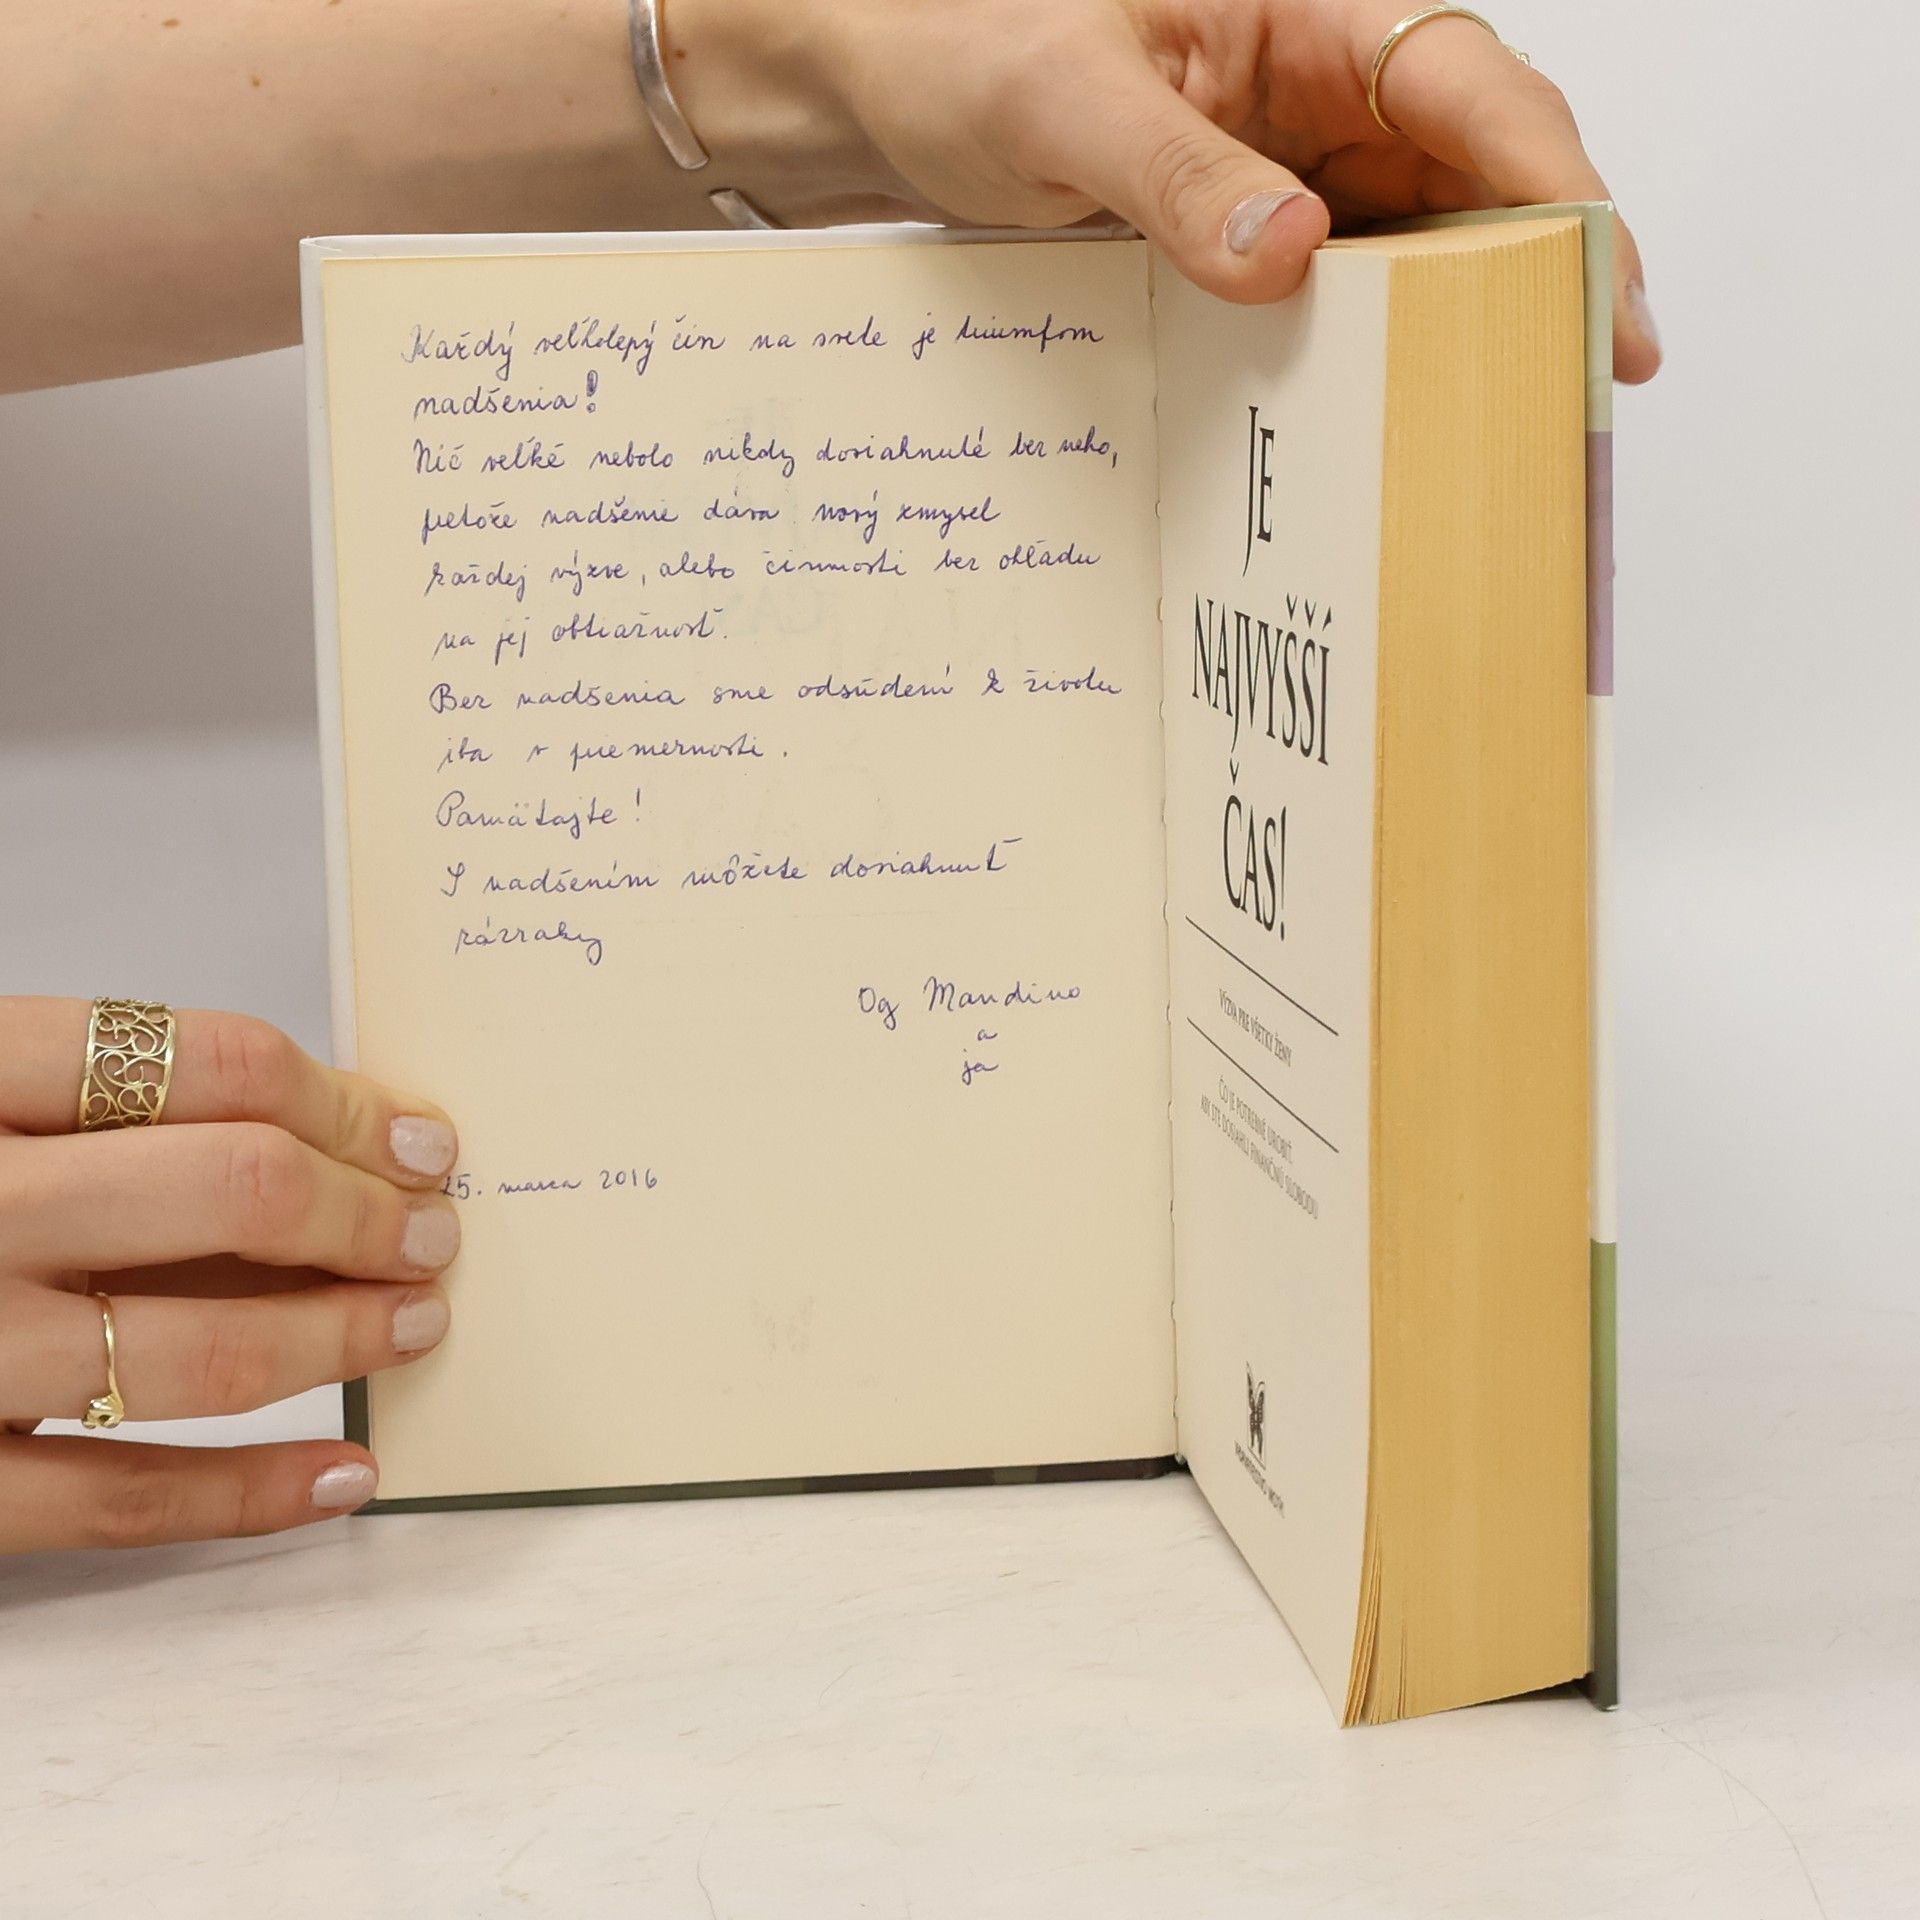 Každý veľkolepý čin na svete je triumfom
nadšenia!
Nič veľké nebolo nikdy dosiahnuté bez neho,
pretože nadšenie dáva nový zmysel
každej výzve, alebo činnosti bez ohľadu
na jej obtiažnosť.
Bez nadšenia sme odsúdení k životu
iba v priemernosti.
Pamätajte!
S nadšením môžete dosiahnuť
zázraky
Og Mandino
a
ja
25. marca 2016
JE
NAJVYŠŠÍ
ČAS!
VÝZVA PRE VŠETKY ŽENY
ČO JE POTREBNÉ UROBIŤ,
ABY STE DOSIAHLI FINANČNÚ SLOBODU